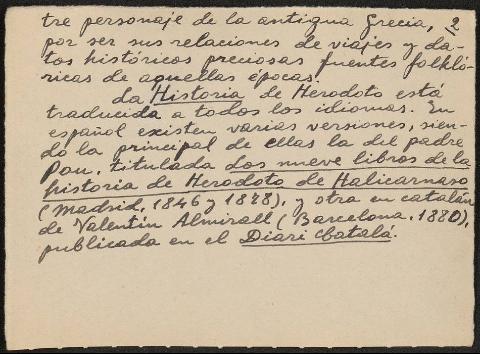 tre personaje de la antigua Grecia, 2
por ser sus relaciones de viajes y da-
tos históricos preciosas fuentes folkló-
ricas de aquellas épocas.
La Historia de Herodoto está
traducida a todos los idiomas. En
español existen varias versiones, sien-
do la principal de ellas la del padre
Pou, titulada Los nueve libros de la
historia de Herodoto de Halicarnaso
(Madrid, 1846 y 1878), y otra en catalán
de Valentín Almirall (Barcelona, 1880),
publicada en el Diari Catalá.